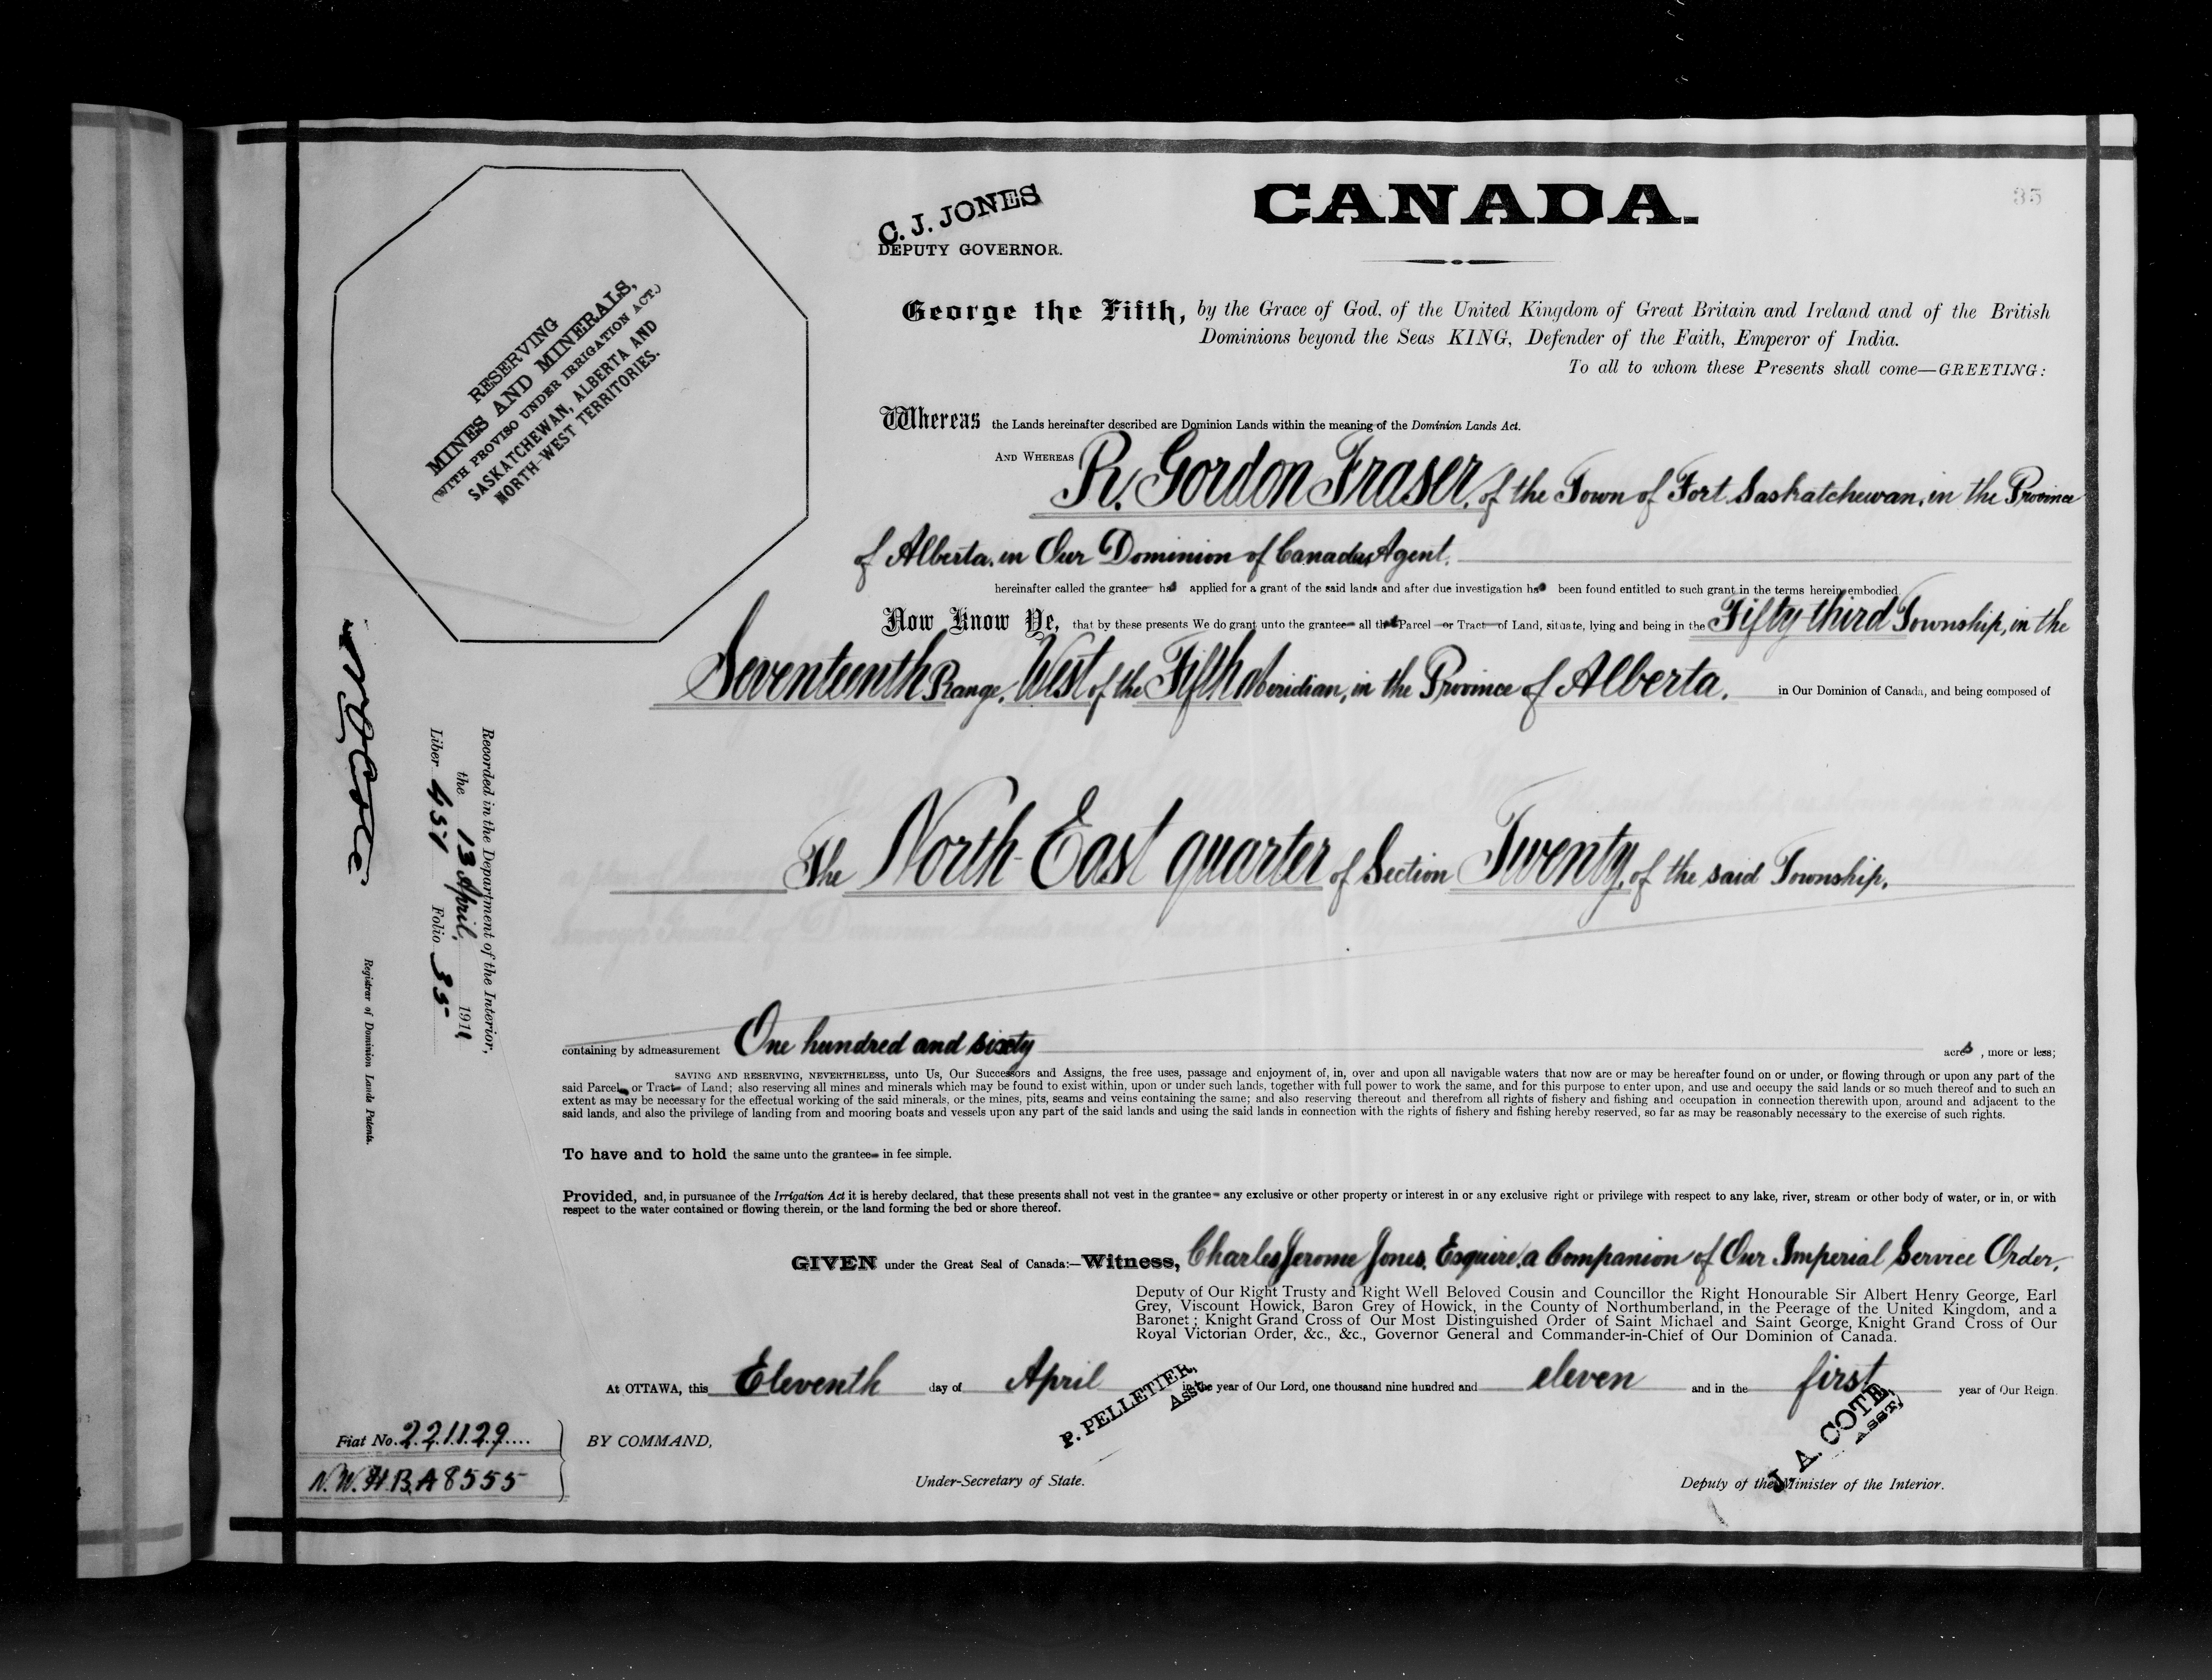 CANADA.
35
C. J. JONES
DEPUTY GOVERNOR.
RESERVING
MINES AND MINERALS,
(WITH PROVISO UNDER IRRIGATION ACT.)
SASKATCHEWAN, ALBERTA AND
NORTH-WEST TERRITORIES.
George the Fifth, by the Grace of God, of the United Kingdom of Great Britain and Ireland and of the British
Dominions beyond the Seas KING, Defender of the Faith, Emperor of India.
To all to whom these Presents shall come—GREETING:
Whereas the Lands hereinafter described are Dominion Lands within the meaning of the Dominion Lands Act.
AND WHEREAS R. Gordon Fraser, of the Town of Fort Saskatchewan, in the Province
of Alberta, in Our Dominion of Canada, Agent.
hereinafter called the grantee has applied for a grant of the said lands and after due investigation has been found entitled to such grant in the terms herein embodied
Now Know Ye, that by these presents We do grant unto the grantee all that Parcel or Tract of Land, situate, lying and being in the Fifty-third Township, in the
Seventeenth Range, West of the Fifth Meridian, in the Province of Alberta. in Our Dominion of Canada, and being composed of
The North-East quarter of Section Twenty, of the said Township.
containing by admeasurement One hundred and sixty acres, more or less;
SAVING AND RESERVING, NEVERTHELESS, unto Us, Our Successors and Assigns, the free uses, passage and enjoyment of, in, over and upon all navigable waters that now are or may be hereafter found on or under, or flowing through or upon any part of the
said Parcel or Tract of Land; also reserving all mines and minerals which may be found to exist within, upon or under such lands, together with full power to work the same, and for this purpose to enter upon, and use and occupy the said lands or so much thereof and to such an
extent as may be necessary for the effectual working of the said minerals, or the mines, pits, seams and veins containing the same; and also reserving thereout and therefrom all rights of fishery and fishing and occupation in connection therewith upon, around and adjacent to the
said lands, and also the privilege of landing from and mooring boats and vessels upon any part of the said lands and using the said lands in connection with the rights of fishery and fishing hereby reserved, so far as may be reasonably necessary to the exercise of such rights.
To have and to hold the same unto the grantee in fee simple.
Provided, and, in pursuance of the Irrigation Act it is hereby declared, that these presents shall not vest in the grantee any exclusive or other property or interest in or any exclusive right or privilege with respect to any lake, river, stream or other body of water, or in, or with
respect to the water contained or flowing therein, or the land forming the bed or shore thereof.
GIVEN under the Great Seal of Canada:—Witness, Charles Jerome Jones, Esquire, a Companion of Our Imperial Service Order,
Deputy of Our Right Trusty and Right Well Beloved Cousin and Councillor the Right Honourable Sir Albert Henry George, Earl
Grey, Viscount Howick, Baron Grey of Howick, in the County of Northumberland, in the Peerage of the United Kingdom, and a
Baronet; Knight Grand Cross of Our Most Distinguished Order of Saint Michael and Saint George, Knight Grand Cross of Our
Royal Victorian Order, &c., &c., Governor General and Commander-in-Chief of Our Dominion of Canada.
At OTTAWA, this Eleventh day of April in the year of Our Lord, one thousand nine hundred and eleven and in the first year of Our Reign.
P. PELLETIER,
Asst.
J. A. COTE,
ASST.
Fiat No. 221129
N.W.H.B.A 8555
BY COMMAND,
Under-Secretary of State.
Deputy of the Minister of the Interior.
Recorded in the Department of the Interior,
the 13 April, 1911
Liber 451 Folio 35
Registrar of Dominion Lands Patents.